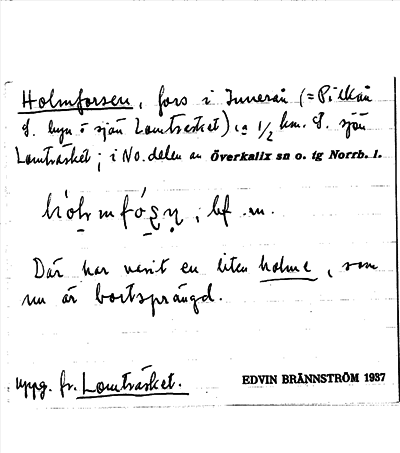 Holmforsen, fors i Inneråån (=Pilkån
S. byn o sjön Lomträsket) ca 1/2 km. S. sjön
Lomträsket; i NO. delen av Överkalix sn o. tg Norrb. l.
bf. m.
Där har varit en liten holme, som
nu är bortsprängd.
uppg. fr. Lomträsket.
EDVIN BRÄNNSTRÖM 1937